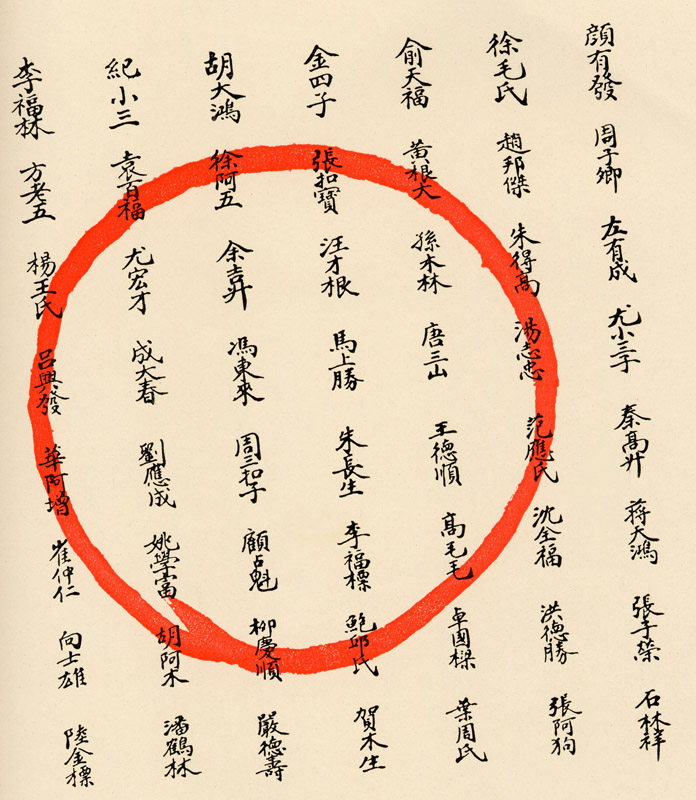 顔有發 周子卿 左有成 尤小三子 秦高升 蔣天鴻 張子榮 石林祥
徐毛氏 趙邦傑 朱得高 湯志忠 范應氏 沈全福 洪德勝 張阿狗
俞天福 黃根大 孫木林 唐三山 王德順 高毛毛 卓國樑 葉周氏
金四子 張扣寶 汪才根 馬上勝 朱長生 李福標 鮑邱氏 賀木生
胡大鴻 徐阿五 余吉升 馮東來 周三扣子 顧占魁 柳慶順 嚴德壽
紀小三 袁百福 尤宏才 成大春 劉應成 姚學富 胡阿木 潘鶴林
李福林 方老五 楊王氏 呂興發 華阿增 崔仲仁 向士雄 陸金標